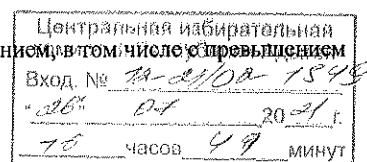 Центральная избирательная
нием, в том числе с превышением
Вход. № 12-21/02-1545
"26" 01 2021 г.
16 часов 49 минут